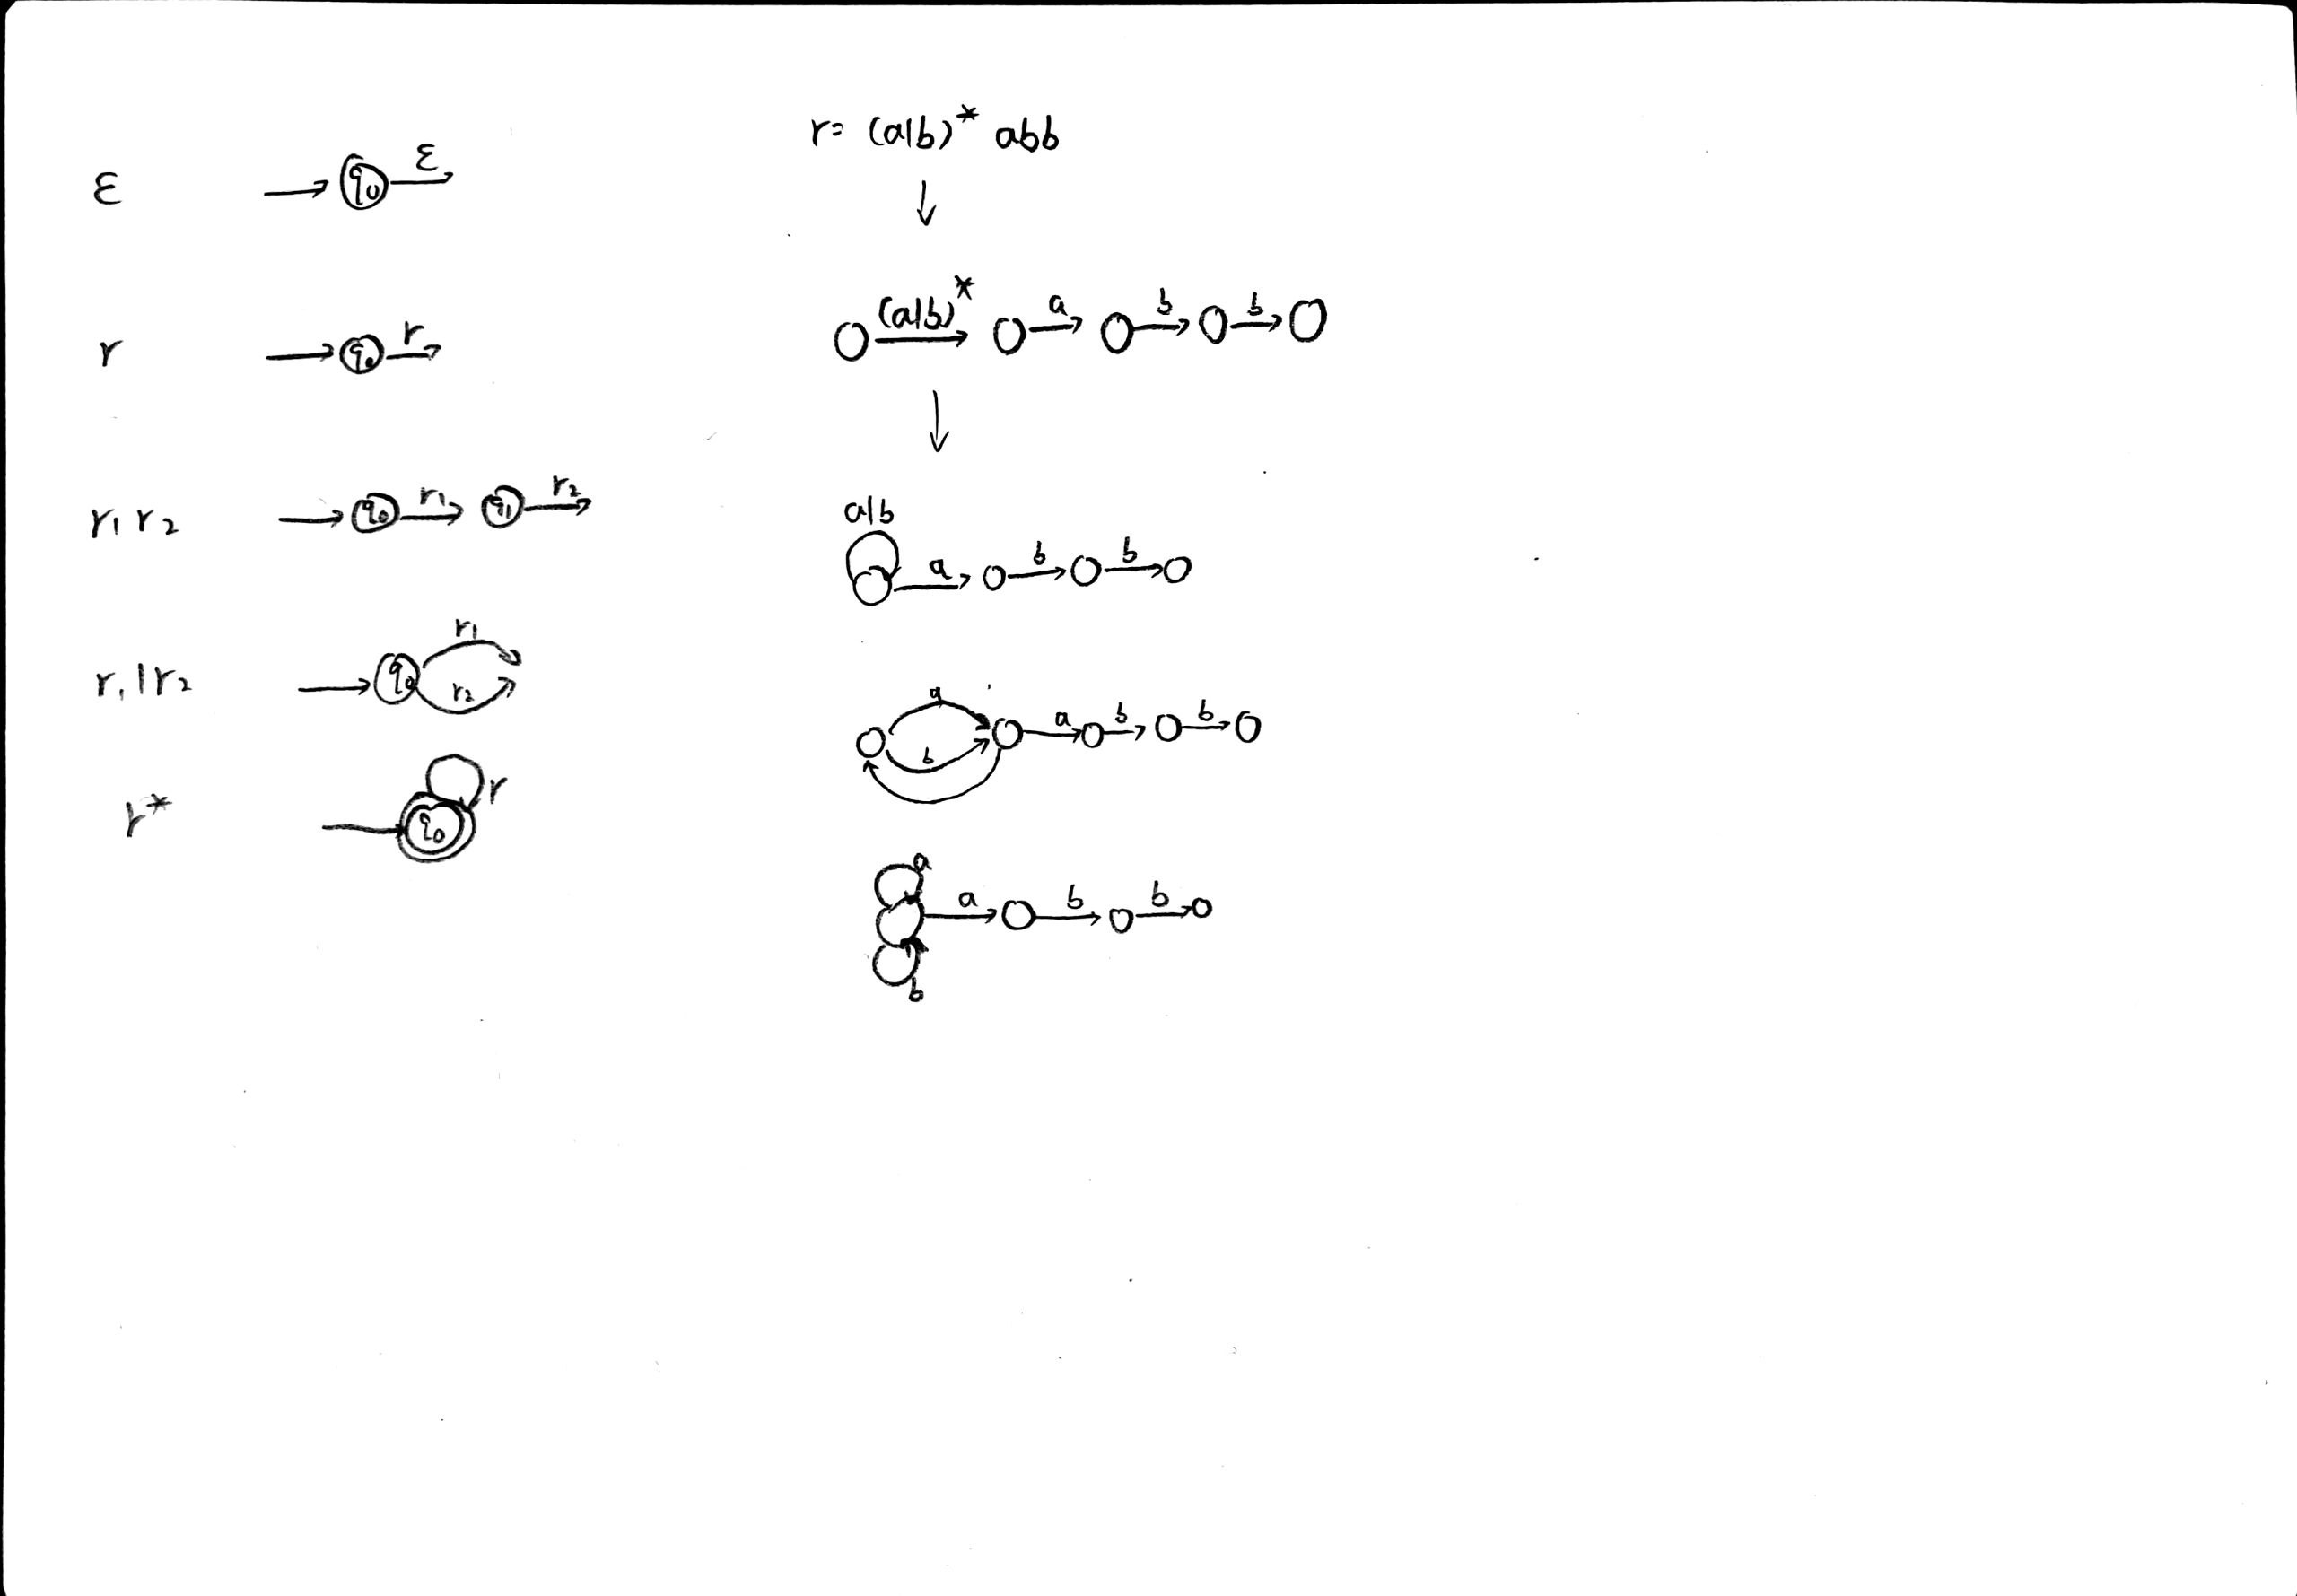 ε q₀ ε
r q₀ r
r₁ r₂ q₀ r₁ q₁ r₂
r₁|r₂ q₀ r₁ r₂
r* q₀ r
r= (a|b)* abb
(a|b)* a b b
a|b
a b b
a b a b b
a a b b b